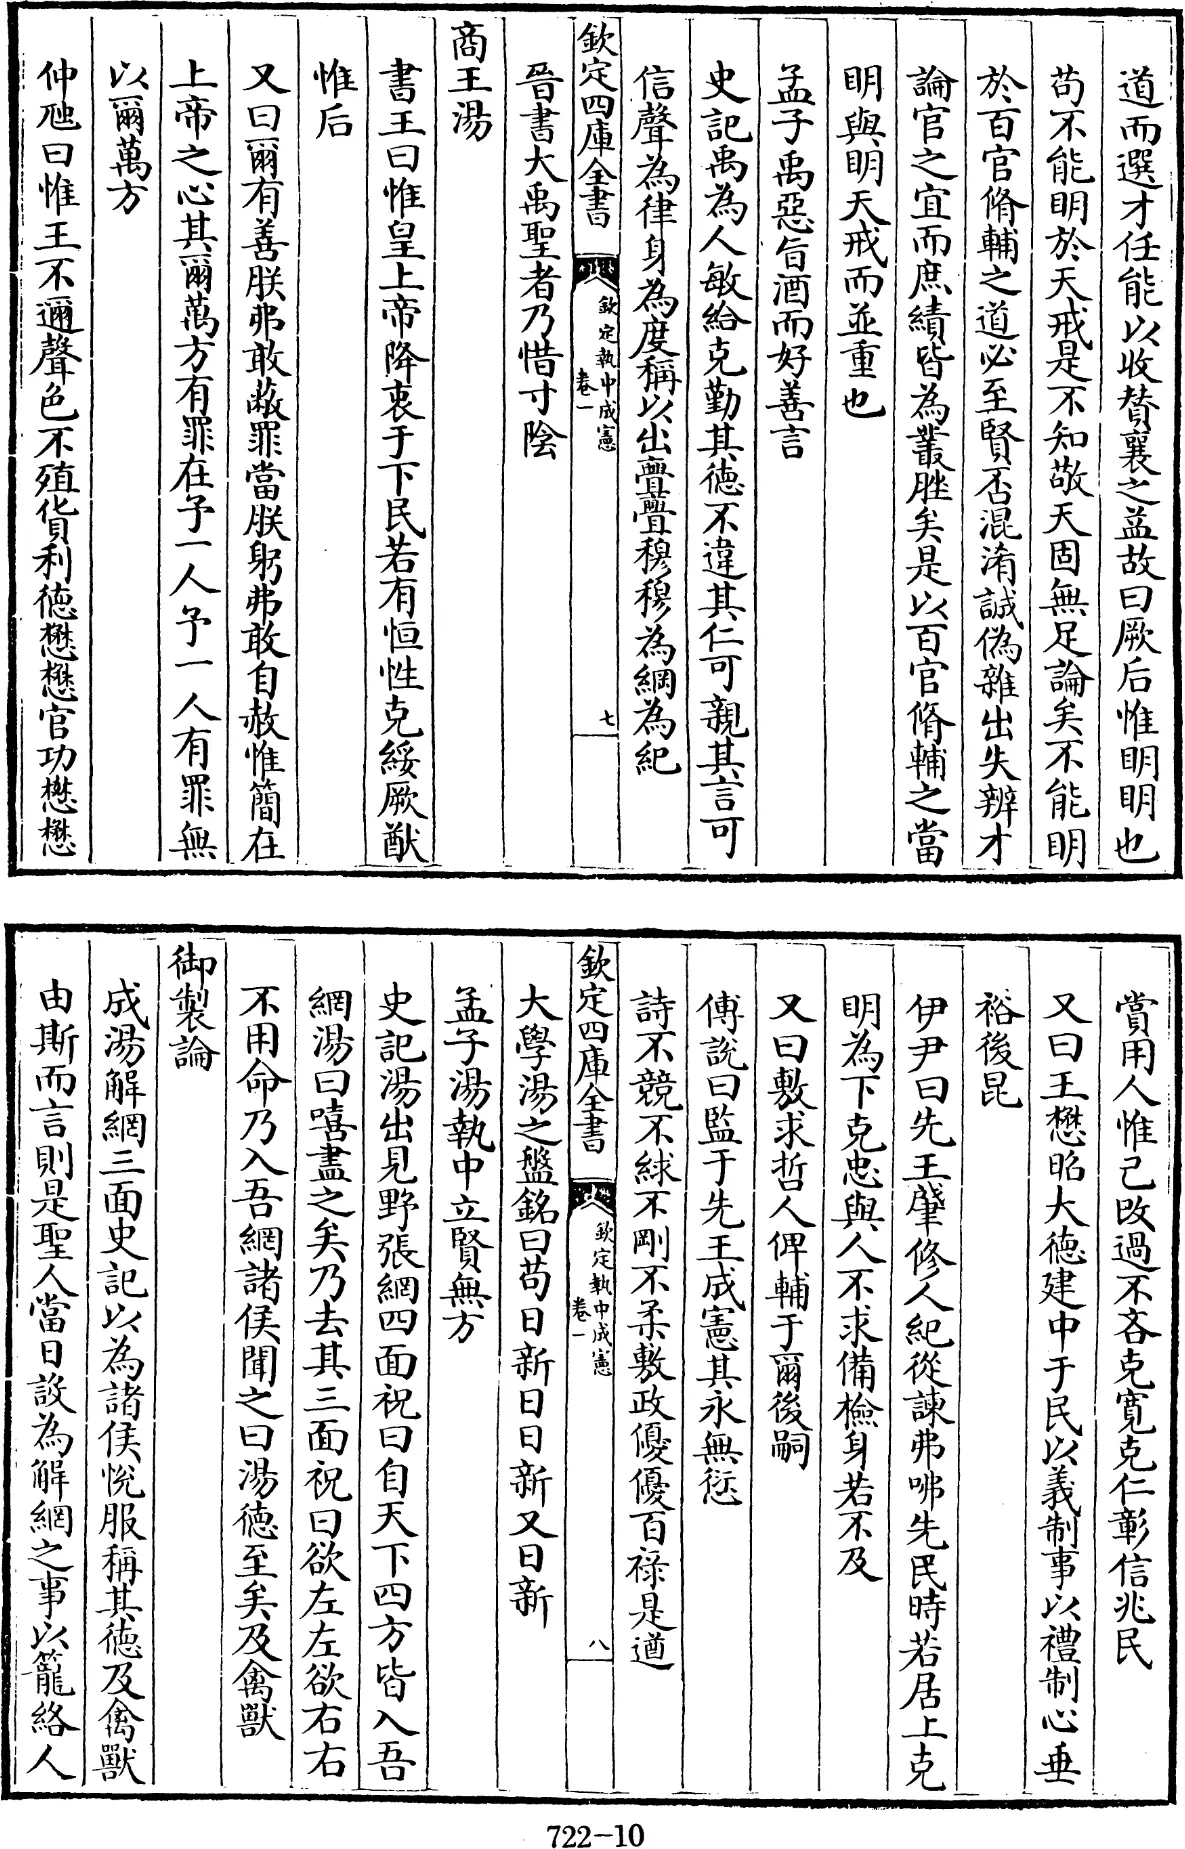 道而選才任能以收賛襄之益故曰厥后惟明明也
苟不能明於天戒是不知敬天固無足論矣不能明
於百官脩輔之道必至賢否混淆誠偽雜出失辨才
論官之宜而庶績皆為叢脞矣是以百官脩輔之當
明與明天戒而並重也
孟子禹惡旨酒而好善言
史記禹為人敏給克勤其徳不違其仁可親其言可
信聲為律身為度稱以出亹亹穆穆為綱為紀
欽定四庫全書
欽定執中成憲
卷一
七
晉書大禹聖者乃惜寸陰
商王湯
書王曰惟皇上帝降衷于下民若有恒性克綏厥猷
惟后
又曰爾有善朕弗敢蔽罪當朕躬弗敢自赦惟簡在
上帝之心其爾萬方有罪在予一人予一人有罪無
以爾萬方
仲虺曰惟王不邇聲色不殖貨利徳懋懋官功懋懋
賞用人惟己改過不吝克寛克仁彰信兆民
又曰王懋昭大徳建中于民以義制事以禮制心垂
裕後昆
伊尹曰先王肇修人紀從諫弗咈先民時若居上克
明為下克忠與人不求備檢身若不及
又曰敷求哲人俾輔于爾後嗣
傅說曰監于先王成憲其永無愆
詩不競不絿不剛不柔敷政優優百祿是遒
欽定四庫全書
欽定執中成憲
卷一
八
大學湯之盤銘曰苟日新日日新又日新
孟子湯執中立賢無方
史記湯出見野張網四面祝曰自天下四方皆入吾
網湯曰嘻盡之矣乃去其三面祝曰欲左左欲右右
不用命乃入吾網諸侯聞之曰湯徳至矣及禽獸
御製論
成湯解網三面史記以為諸侯悅服稱其徳及禽獸
由斯而言則是聖人當日設為解網之事以籠絡人
722-10